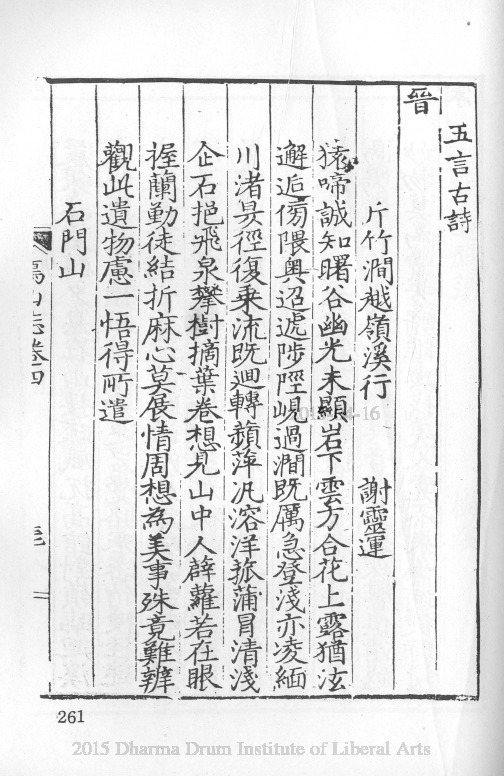 五言古詩
晉
斤竹澗越嶺溪行 謝靈運
猿啼誠知曙谷幽光未顯岩下雲方合花上露猶泫
邂逅傍隈奧迢遞陟陘峴過澗既厲急登淺亦凌緬
川渚具徑復乗流既迴轉蘋萍汎溶洋菰蒲冒清淺
企石挹飛泉攀樹摘葉卷想見山中人薜蘿若在眼
握蘭勤徒結折麻心莫展情周想為美事殊竟難辨
觀此遺物慮一悟得所遣
石門山
山志卷四
261
2015 Dharma Drum Institute of Liberal Arts